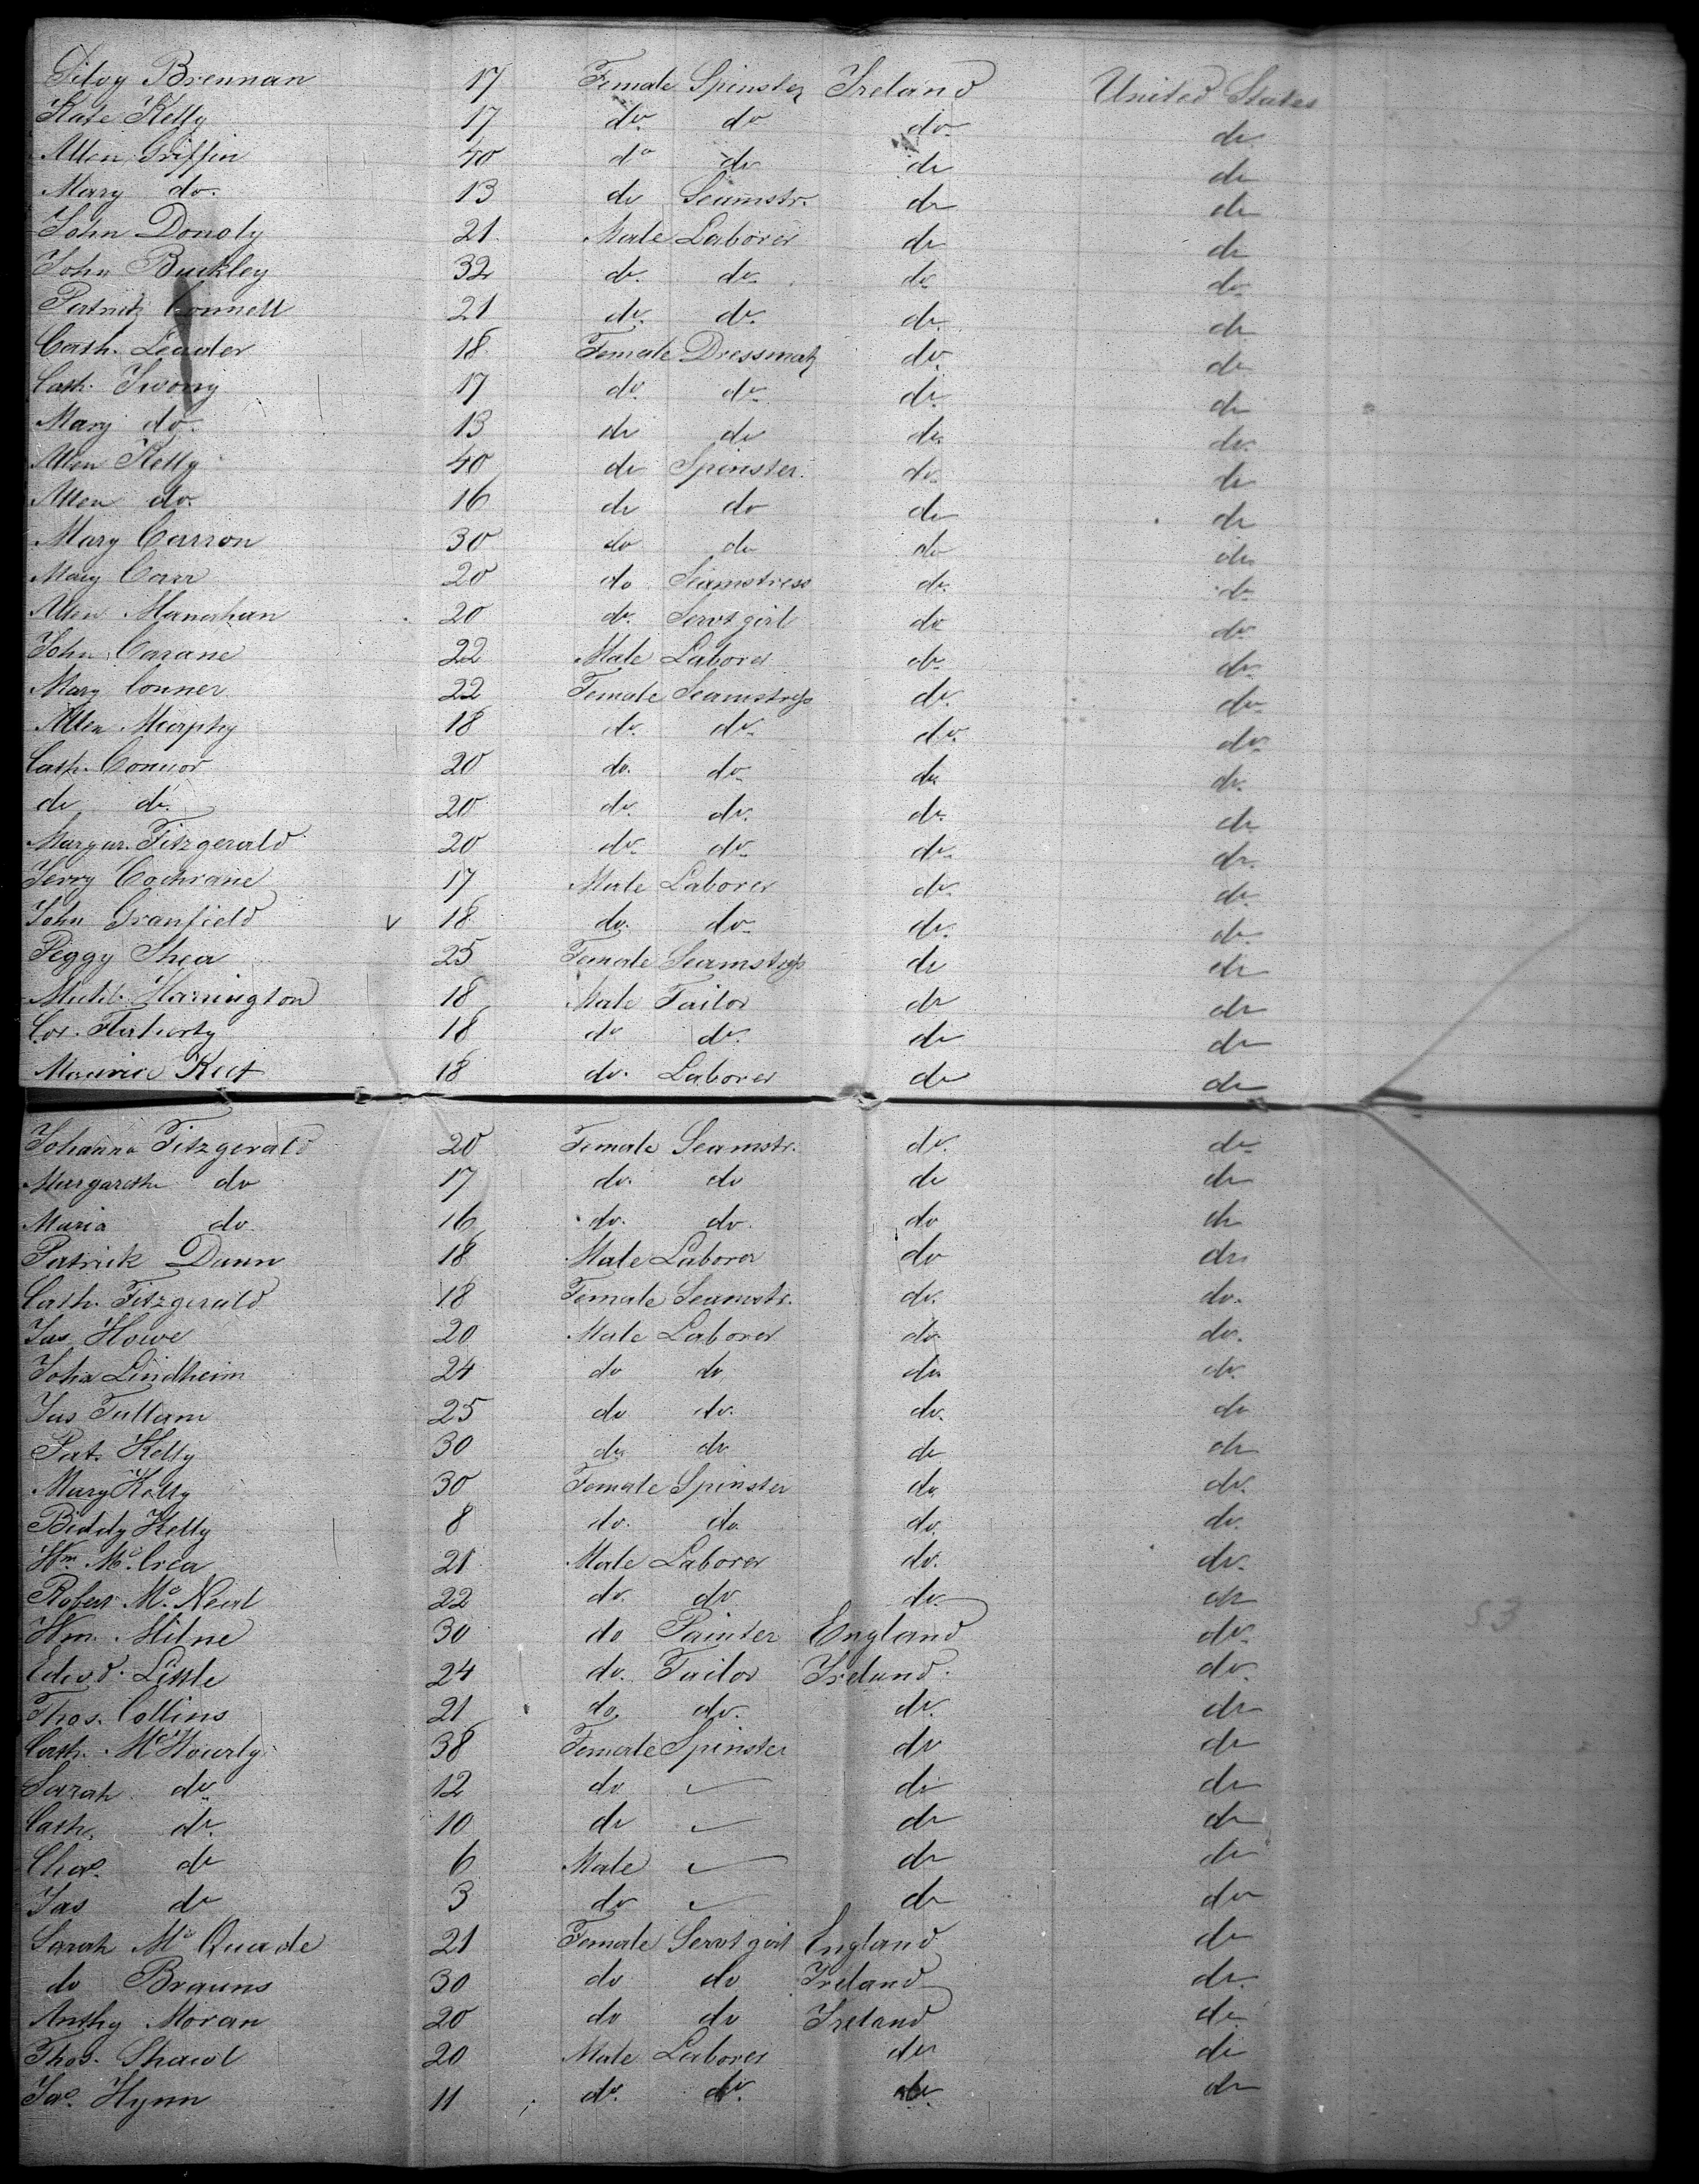 Brennan 17 Female Spinster Ireland United States
Kate Kelly 17 do do do do
Ellen Griffin 40 do do do do
Mary do. 13 do Seamstr. do do
John Donoly 21 Male Laborer do do
John Buckley 32 do. do do do
Patrick Connell 21 do. do. do. do
Cath. Leader 18 Female Dressmak do. do
Cath. 17 do do do do
Mary do. 13 do do do do
Ellen Kelly 40 do Spinster. do. do
Ellen do. 16 do do do do
Mary Carron 30 do do do do
Mary Carr 20 do Seamstress do. do
Ellen Manahan 20 do. Servt girl do do
John Carane 22 Male Laborer do do
Mary Conner 22 Female Seamstress do. do
Ellen Murphy 18 do. do. do. do
Cath. Connor 20 do. do do do.
do do. 20 do. do. do. do
Margar. Fitzgerald 20 do do do do.
Jerry Cochrane 17 Male Laborer do do
John Granfield v 18 do. do do. do
Peggy Shea 25 Female Seamstress do do
Michl. Harrington 18 Male Tailor do do
Cor. Flaherty 18 do do. do do
Maurice Keef 18 do. Laborer do do
Johanna Fitzgerald 20 Female Seamstr. do. do
Margareth do 17 do. do do do
Maria do 16 do. do. do do
Patrick Dunn 18 Male Laborer do do
Cath. Fitzgerald 18 Female Seamstr. do. do.
Jas Howe 20 Male Laborer do do.
John Lindheim 24 do do do do
Jas Tullam 25 do do. do. do
Pat. Kelly 30 do do do do
Mary Kelly 30 Female Spinster do do.
Biddy Kelly 8 do. do do. do.
Wm. McCrea 21 Male Laborer do. do.
Robert McNeal 22 do. do do do
Wm. Milne 30 do Painter England do
Edwd. Little 24 do. Tailor Ireland do.
Thos. Collins 21 do do. do. do
Cath. McHourly 38 Female Spinster do do
Sarah do 12 do do do
Cath. do 10 do do do
Chas. do 6 Male do do
Jas do 3 do do do
Sarah McQuade 21 Female Servt girl England do
do Brauns 30 do do Ireland do.
Anthy Moran 20 do do Ireland do
Thos. 20 Male Laborer do do
Jas. Hynn 11 do. do. do. do